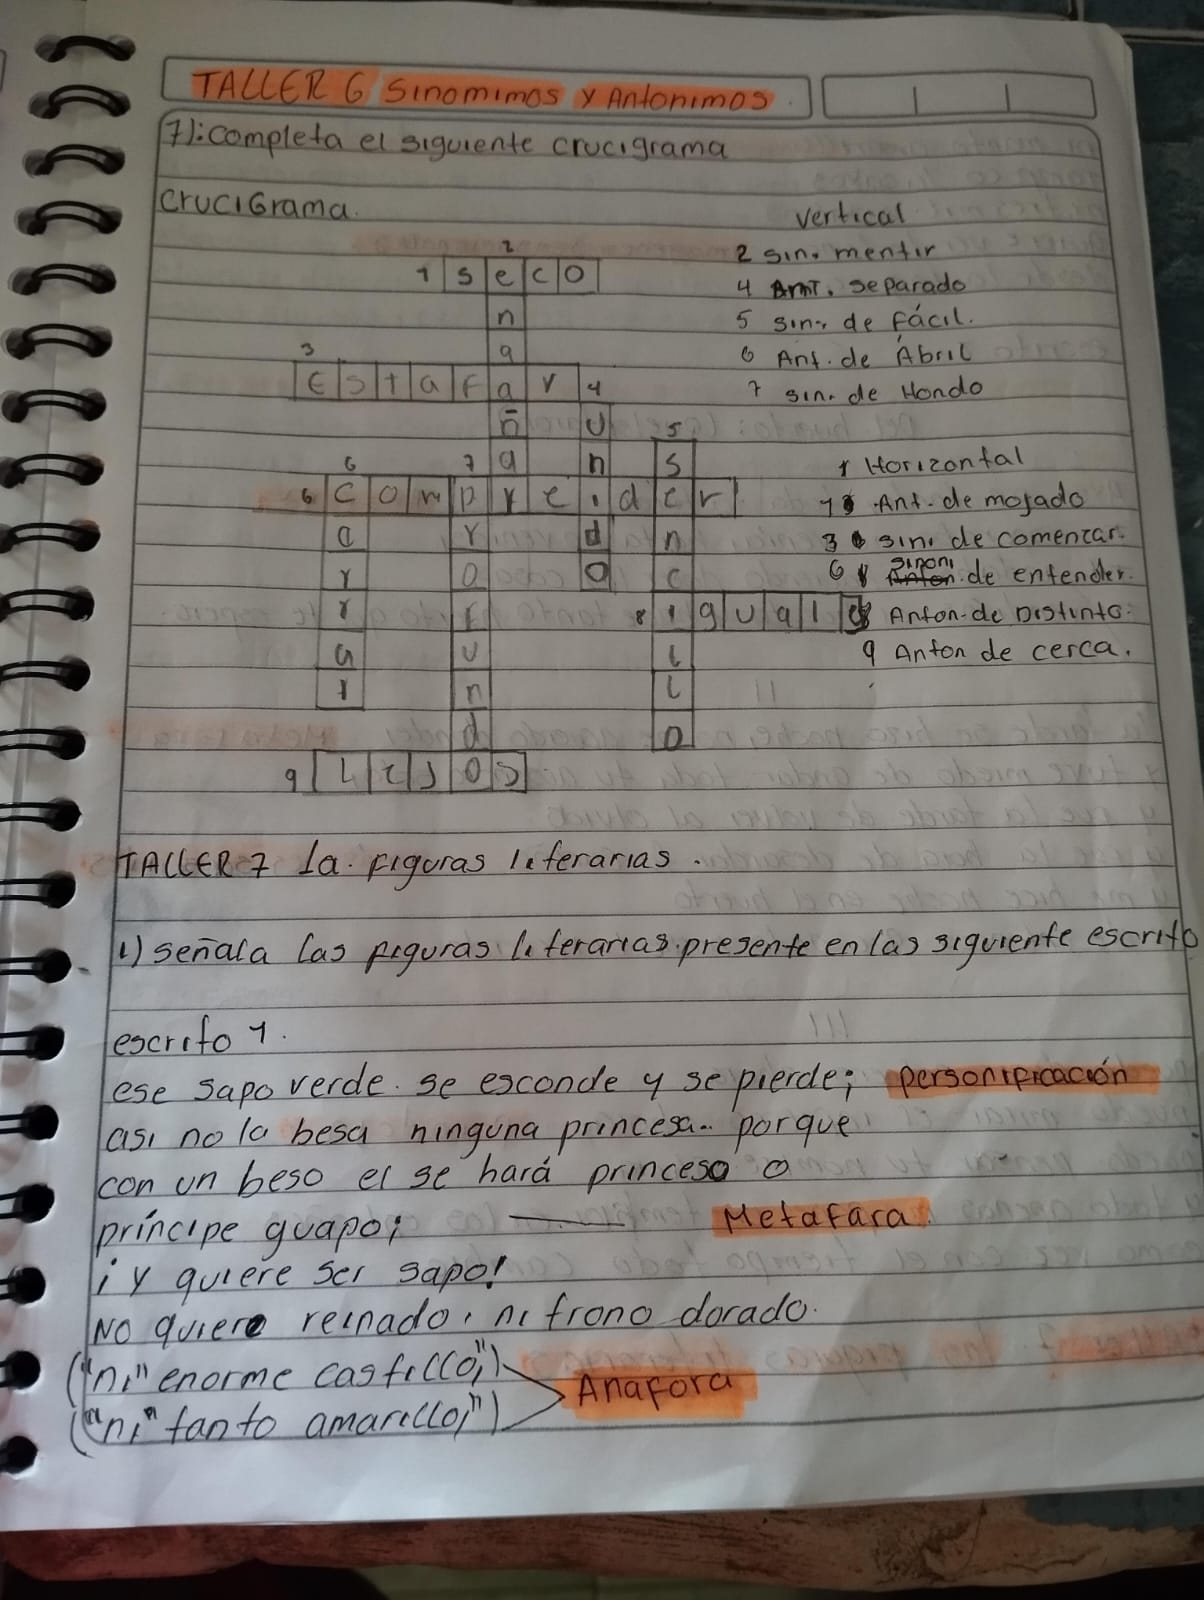 TALLER 6 Sinomimos y Antonimos
7): completa el siguiente crucigrama
CruciGrama.
vertical
2 sin. mentir
4 Ant. separado
5 sin. de Fácil.
6 Ant. de Ábril
7 sin. de Hondo
Horizontal
1 Ant. de mojado
3 sin. de comenzar.
6 sinoni de entender.
8 Anton de Distinto.
9 Anton de cerca.
2
1 seco
n
g
3
Estafar 4
ñ U 5
6 7 a n S
6 Comprender
a r d n
r o o c
r F 8 igual
a u l
r n l
d o
9 Lejos
TALLER 7 la. Figuras literarias.
1) señala las Figuras literarias presente en las siguiente escrito
escrito 1.
ese sapo verde. se esconde y se pierde; personificación
asi no la besa ninguna princesa.. porque
con un beso el se hará princeso o
príncipe guapo; Metafara.
¡y quiere ser sapo!
NO quiere reinado, ni trono dorado.
("ni" enorme castillo;")
Anafora
("ni" tanto amarillo;")